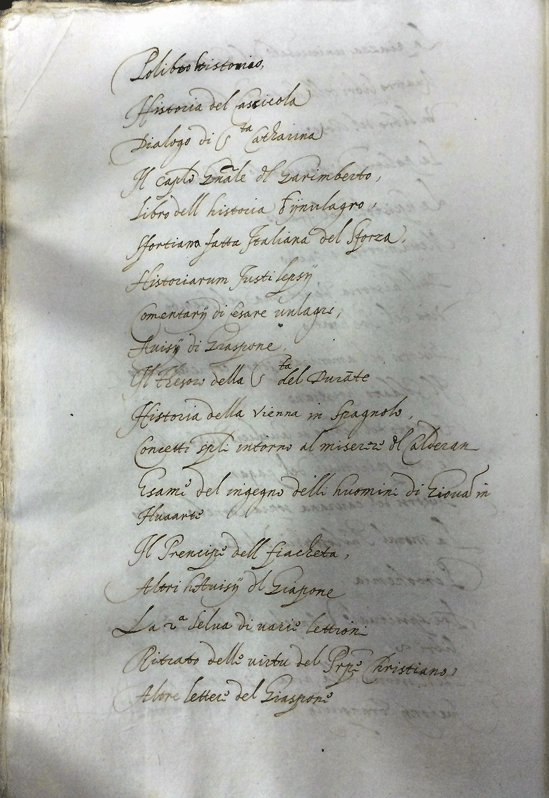 Polibro historico,
Historia del Cassicola
Dialogo di S.ta Catharina
Il Capto Gnale del Garimberto,
Libro dell historia in vulagro,
Sfortiano fatta Italiana del Sforza,
Historiarum Justi lepsÿ
Comentarÿ di Cesare vulagre,
Auisÿ di Giaspone
Il thesoro della S.ta del Durāte
Historia della vienna in Spagnolo,
Concetti spli intorno al miserere del Calderan
Esame del ingegno delli huomini di Giouañin
Huuarte
Il Prencipe dell fiacheta,
Altri Auisÿ del Giapone
La 2.a selua di varie lettioni
Ritrato delle virtu del Prpe Christiano,
Altre lettere del Giaspone